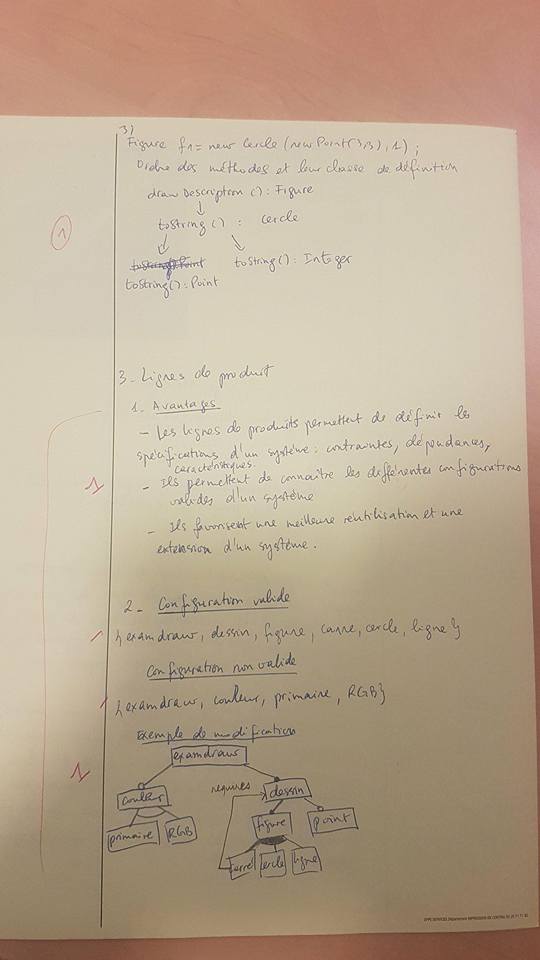 3)
Figure f1 = new Cercle (new Point(3,3), 1) ;
Ordre des méthodes et leur classe de définition
drawDescription () : Figure
toString() : Cercle
toString() : Integer
toString() : Point
1
3. Lignes de produit
1. Avantages
- Les lignes de produits permettent de définir les
spécifications d'un système : contraintes, dépendances,
caractéristiques.
- Ils permettent de connaître les différentes configurations
valides d'un système
- Ils favorisent une meilleure réutilisation et une
extension d'un système.
1
2- Configuration valide
{examdraw, dessin, figure, carre, cercle, ligne}
Configuration non valide
{examdraw, couleur, primaire, RGB}
Exemple de modification
examdraw
couleur
requires
dessin
primaire
RGB
figure
point
carre
cercle
ligne
1